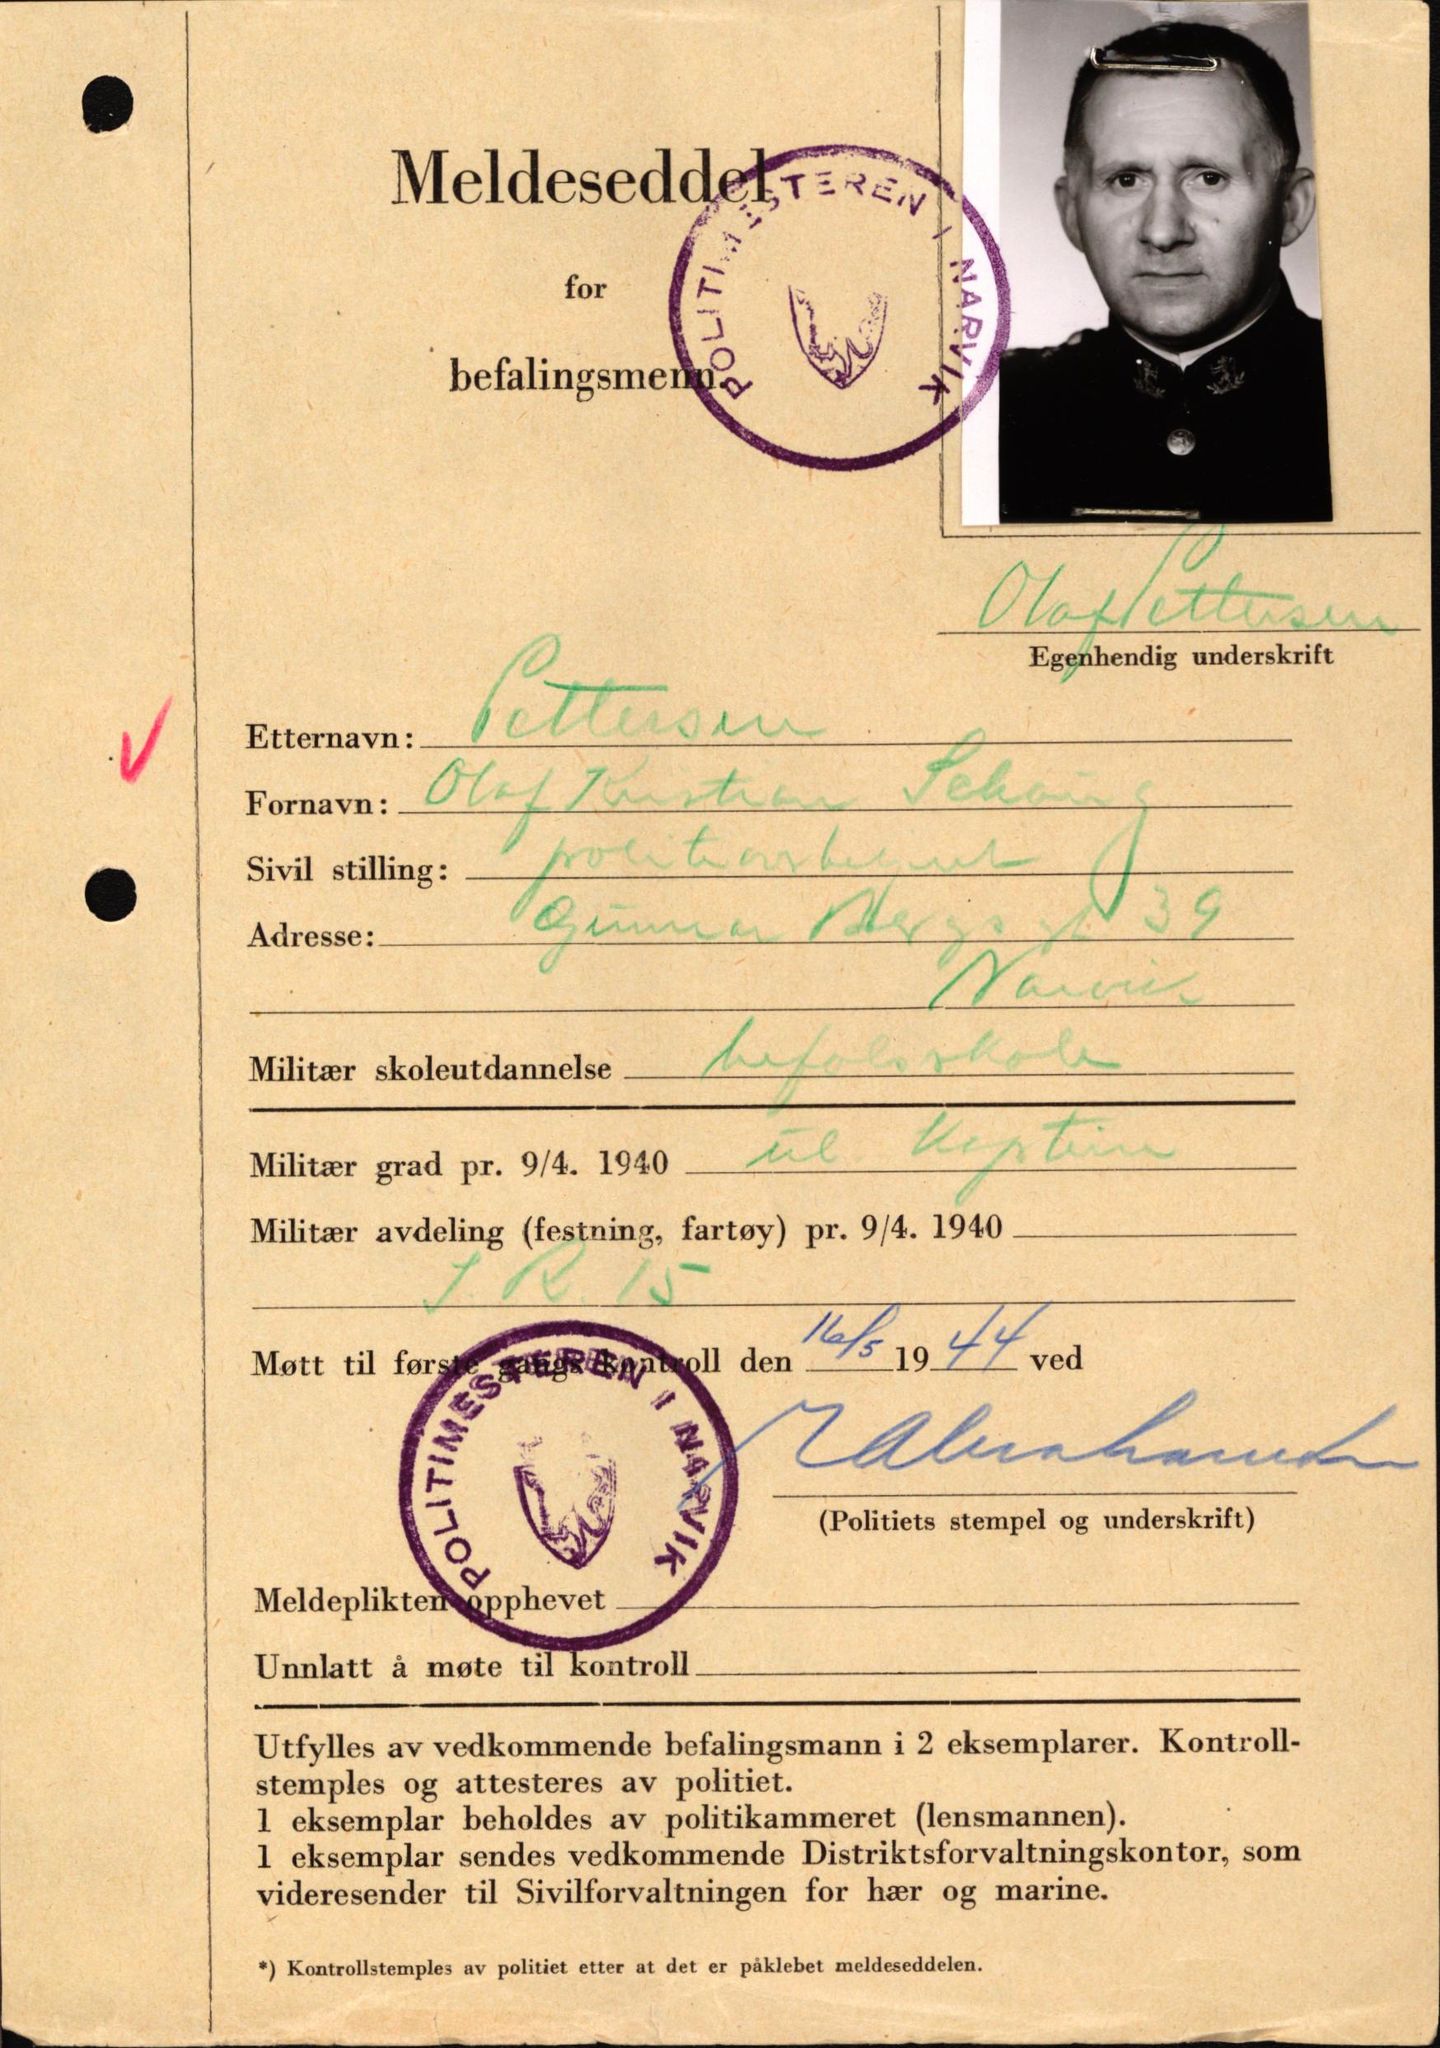 Meldeseddel
for
befalingsmenn.
POLITIMESTEREN I NARVIK
Olaf Pettersen
Egenhendig underskrift
Etternavn: Pettersen
Fornavn: Olaf Kristian Schöning
Sivil stilling: politioverbetjent
Adresse: Gunnar Bergs gt 39
Narvik
Militær skoleutdannelse befalsskole
Militær grad pr. 9/4. 1940 Kaptein
Militær avdeling (festning, fartøy) pr. 9/4. 1940
I. R. 15
Møtt til første gangs kontroll den 16/5 1944 ved
POLITIMESTEREN I NARVIK
(Politiets stempel og underskrift)
Meldeplikten opphevet
Unnlatt å møte til kontroll
Utfylles av vedkommende befalingsmann i 2 eksemplarer. Kontroll-
stemples og attesteres av politiet.
1 eksemplar beholdes av politikammeret (lensmannen).
1 eksemplar sendes vedkommende Distriktsforvaltningskontor, som
videresender til Sivilforvaltningen for hær og marine.
*) Kontrollstemples av politiet etter at det er påklebet meldeseddelen.